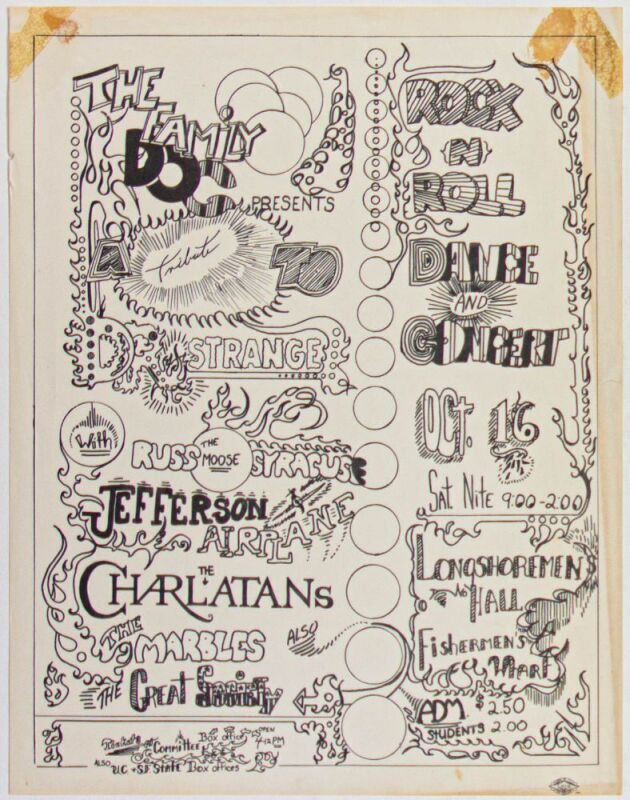 THE
FAMILY
DOG
PRESENTS
A Tribute TO
DR. STRANGE
With
RUSS THE MOOSE SYRACUSE
JEFFERSON
AIRPLANE
THE
CHARLATANS
THE
MARBLES
ALSO
THE GREAT SOCIETY
Committee Box office OPEN
4-12 PM
ALSO U.C. + S.F. STATE Box offices
ROCK
N
ROLL
DANCE
AND
CONCERT
OCT. 16
SAT. NITE 9:00-2:00
LONGSHOREMEN'S
HALL
FISHERMEN'S
WHARF
ADM. $2.50
STUDENTS 2.00